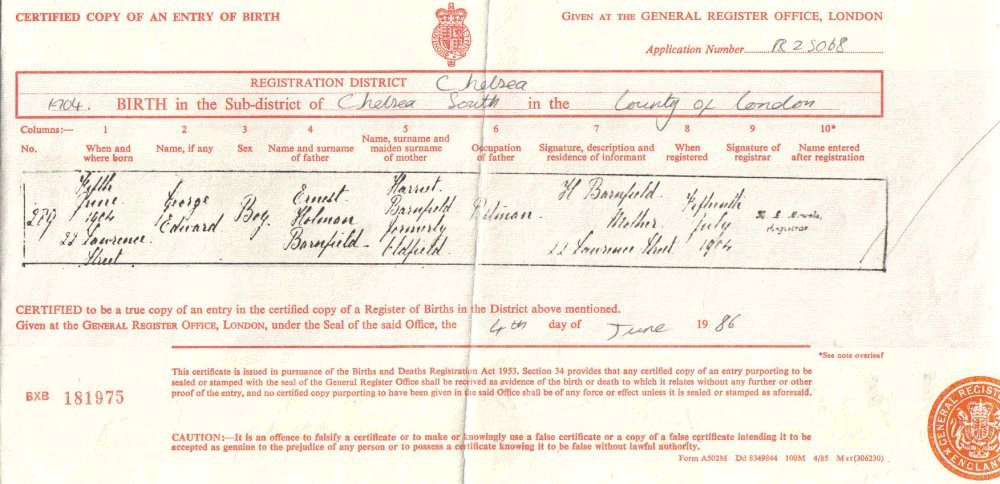 CERTIFIED COPY OF AN ENTRY OF BIRTH
GIVEN AT THE GENERAL REGISTER OFFICE, LONDON
Application Number R25068
REGISTRATION DISTRICT Chelsea
1904. BIRTH in the Sub-district of Chelsea South in the County of London
Columns:— 1 2 3 4 5 6 7 8 9 10*
No. When and where born Name, if any Sex Name and surname of father Name, surname and maiden surname of mother Occupation of father Signature, description and residence of informant When registered Signature of registrar Name entered after registration
279 Fifth June 1904 22 Lawrence Street
George Edward
Boy
Ernest Holman Barnfield
Harriet Barnfield formerly Oldfield
H Barnfield. Mother. 22 Lawrence Street
Fifteenth July 1904
Registrar
CERTIFIED to be a true copy of an entry in the certified copy of a Register of Births in the District above mentioned.
Given at the GENERAL REGISTER OFFICE, LONDON, under the Seal of the said Office, the 4th day of June 1986
*See note overleaf
This certificate is issued in pursuance of the Births and Deaths Registration Act 1953. Section 34 provides that any certified copy of an entry purporting to be
sealed or stamped with the seal of the General Register Office shall be received as evidence of the birth or death to which it relates without any further or other
proof of the entry, and no certified copy purporting to have been given in the said Office shall be of any force or effect unless it is sealed or stamped as aforesaid.
BXB 181975
CAUTION:—It is an offence to falsify a certificate or to make or knowingly use a false certificate or a copy of a false certificate intending it to be
accepted as genuine to the prejudice of any person or to possess a certificate knowing it to be false without lawful authority.
Form A502M Dd 8349844 100M 4/85 Mcr(306230)
GENERAL REGISTER
ENGLAND